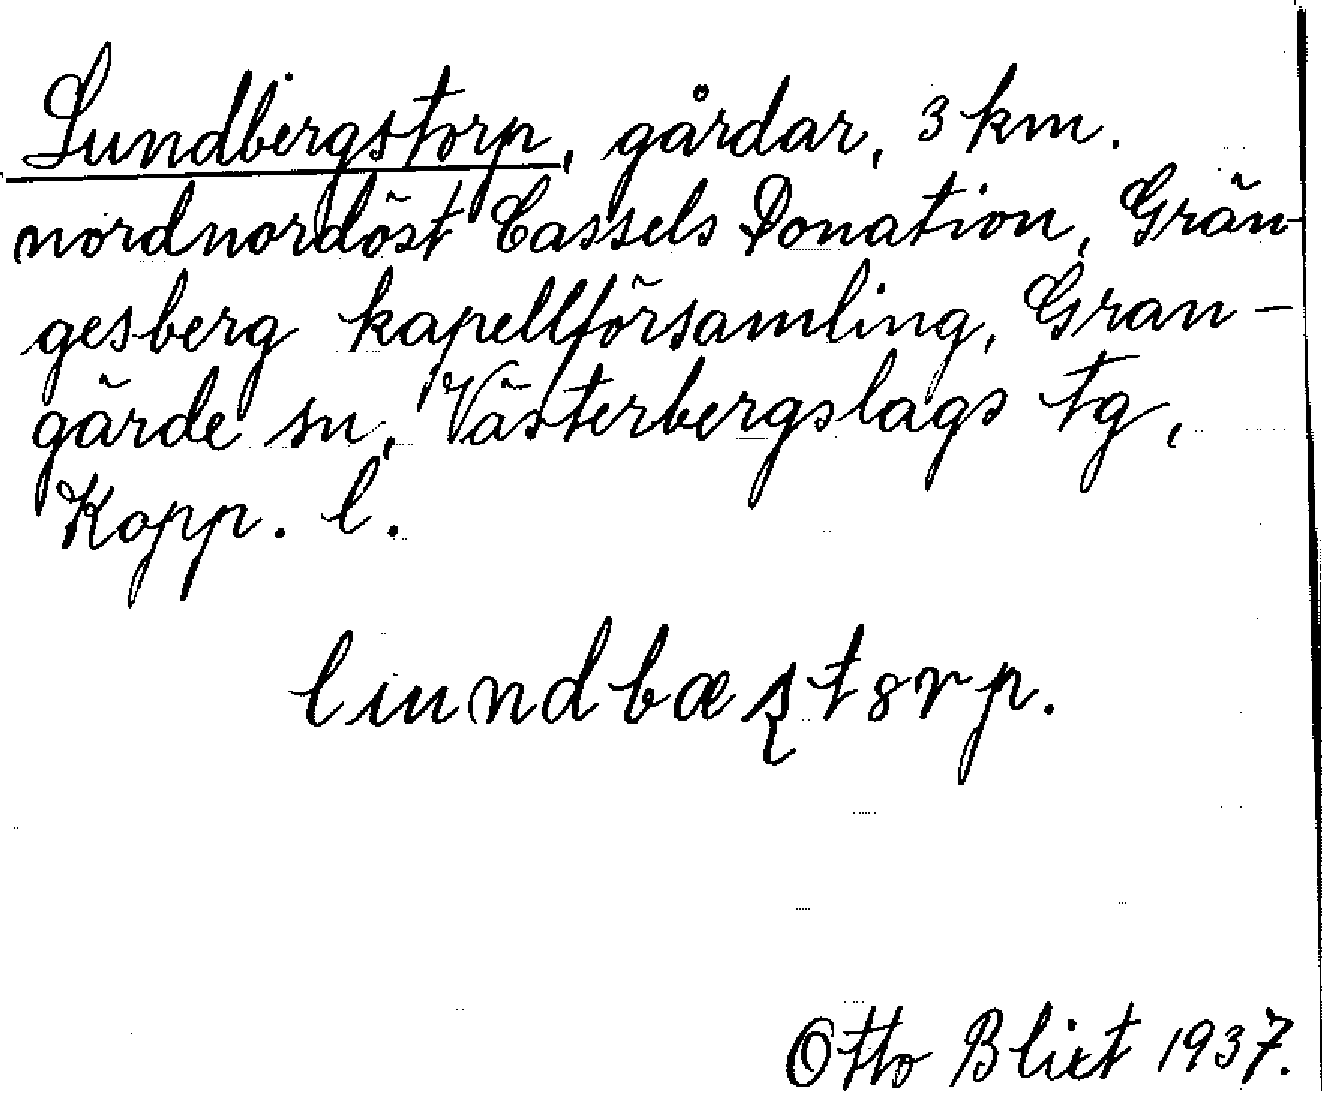 Lundbergstorp, gårdar, 3 km.
nordnordöst Cassels Donation, Grän-
gesberg kapellförsamling, Gran-
gärde sn, Västerbergslags tg,
Kopp. l.
lundbæʂtɞrp.
Otto Blixt 1937.